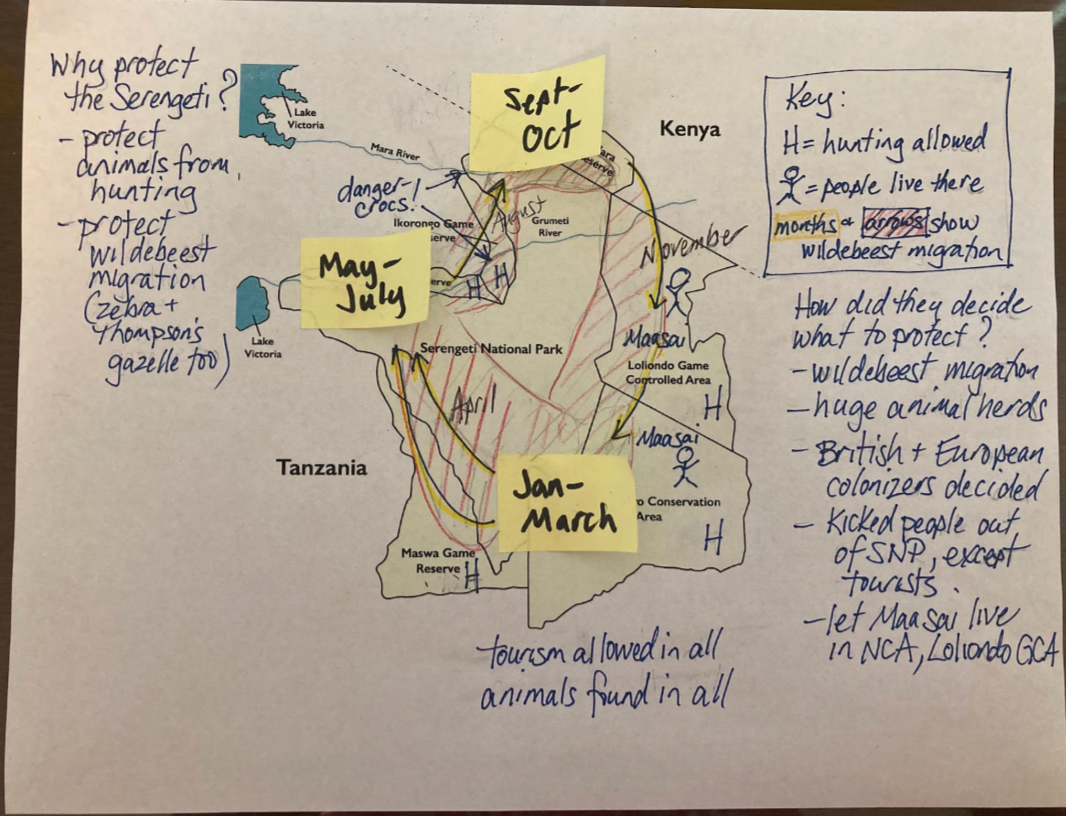 Why protect
the Serengeti?
- protect
animals from
hunting
- protect
wildebeest
migration
(zebra +
Thompson's
gazelle too)
Lake
Victoria
Mara River
Sept-
Oct
Kenya
Reserve
danger-!
crocs!
Ikorongo Game
August
Grumeti
River
November
May-
July
H
H
Lake
Victoria
Serengeti National Park
Maasai
Loliondo Game
Controlled Area
H
April
Maasai
Tanzania
Jan-
March
Conservation
Area
H
Maswa Game
Reserve
H
tourism allowed in all
animals found in all
Key:
H = hunting allowed
= people live there
months + arrows show
wildebeest migration
How did they decide
what to protect?
- wildebeest migration
- huge animal herds
- British + European
colonizers decided
- Kicked people out
of SNP, except
tourists.
- let Maasai live
in NCA, Loliondo GCA